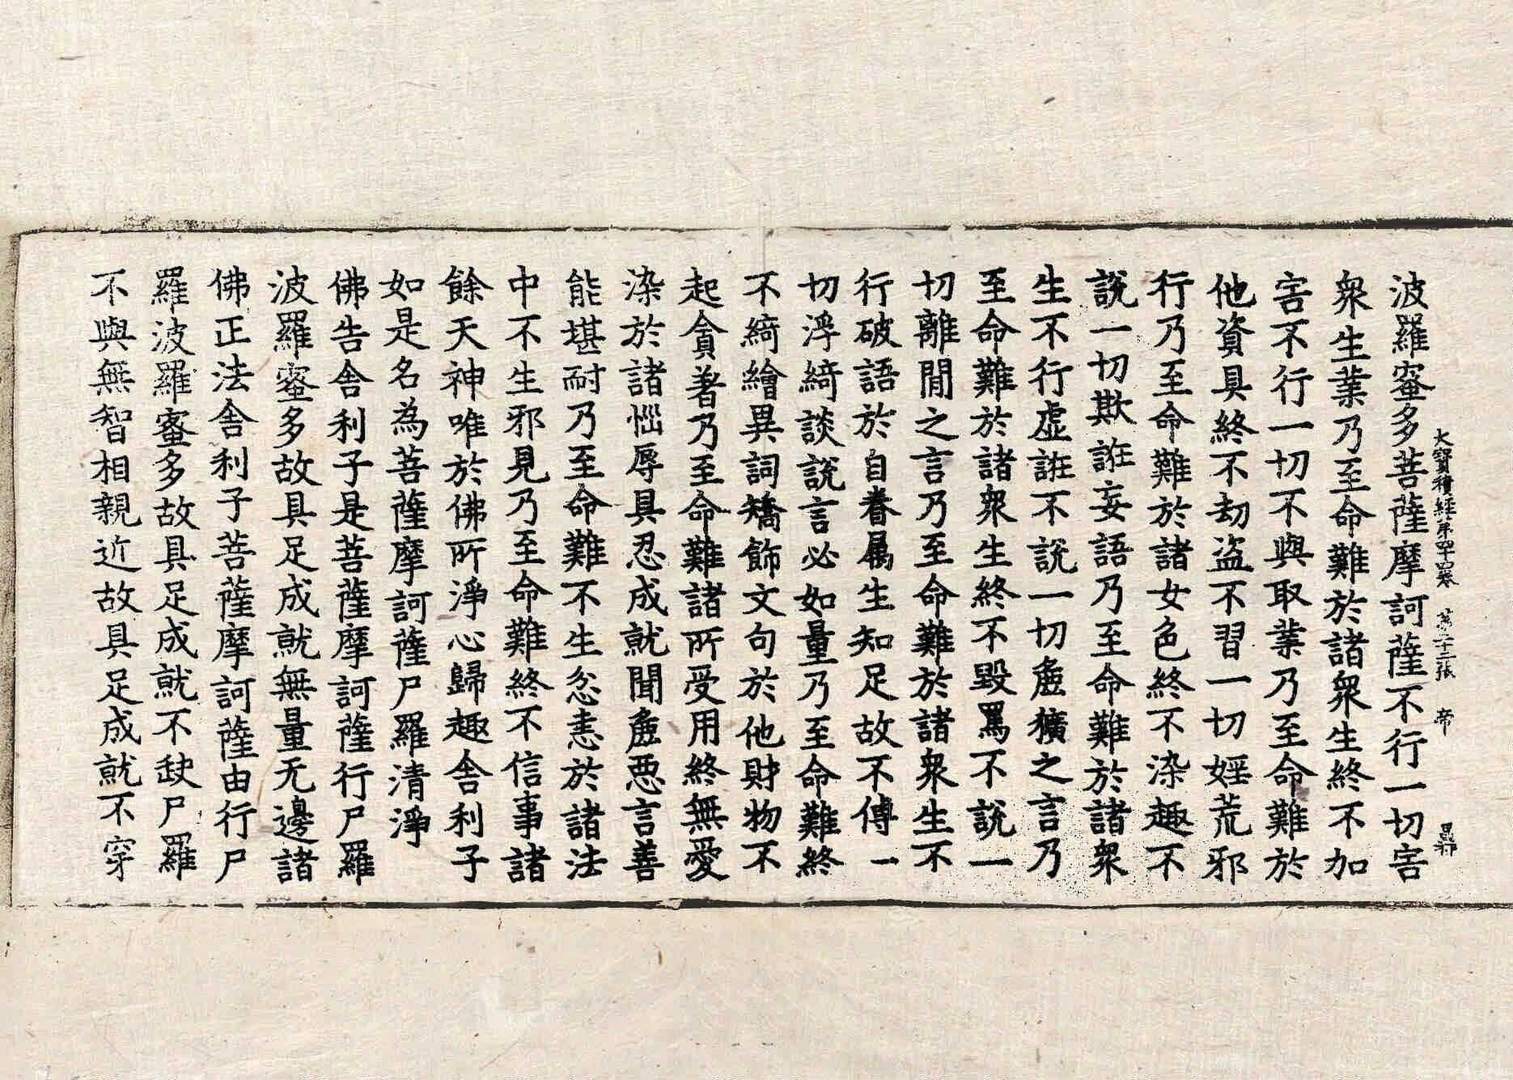 大寶積經第四十四卷 第二十二張 帝
波羅蜜多菩薩摩訶薩不行一切害
衆生業乃至命難於諸衆生終不加
害不行一切不與取業乃至命難於
他資具終不劫盜不習一切婬荒邪
行乃至命難於諸女色終不染趣不
說一切欺誑妄語乃至命難於諸衆
生不行虛誑不說一切麁獷之言乃
至命難於諸衆生終不毀罵不說一
切離間之言乃至命難於諸衆生不
行破語於自眷属生知足故不傳一
切浮綺談說言必如量乃至命難終
不綺繪異詞矯飾文句於他財物不
起貪著乃至命難諸所受用終無愛
染於諸惱辱具忍成就聞麁惡言善
能堪耐乃至命難不生忿恚於諸法
中不生邪見乃至命難終不信事諸
餘天神唯於佛所淨心歸趣舍利子
如是名為菩薩摩訶薩尸羅清淨
佛告舍利子是菩薩摩訶薩行尸羅
波羅蜜多故具足成就無量无邊諸
佛正法舍利子菩薩摩訶薩由行尸
羅波羅蜜多故具足成就不缺尸羅
不與無智相親近故具足成就不穿